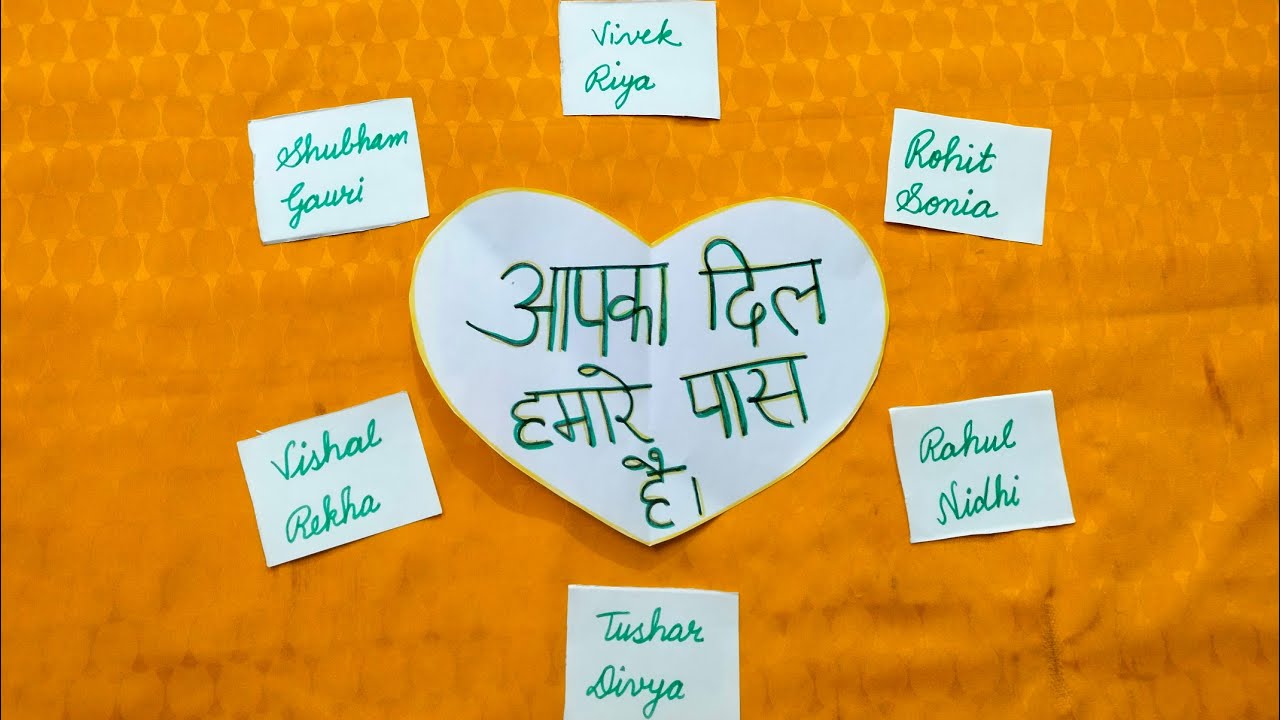 Vivek
Riya
Shubham
Gauri
Rohit
Sonia
आपका दिल
हमारे पास
है।
Vishal
Rekha
Rahul
Nidhi
Tushar
Divya